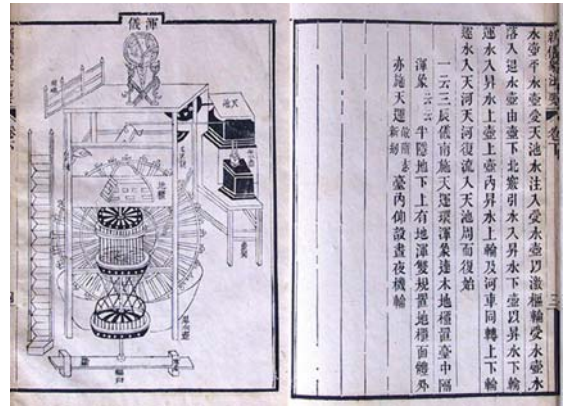 新儀象法要 卷下 三
水壺平水壺受天池水注入受水壺以激樞輪受水壺水
落入退水壺由壺下北竅引水入昇水下壺以昇水下輪
運水入昇水上壺上壺內昇水上輪及河車同轉上下輪
運水入天河天河復流入天池周而復始
一云三辰儀南施天運環渾象連木地櫃置臺中隔
渾象云云半隱地下上有地渾雙規置地櫃面鐶外
亦施天運臺內仰設晝夜機輪
渾儀
天池
地櫃